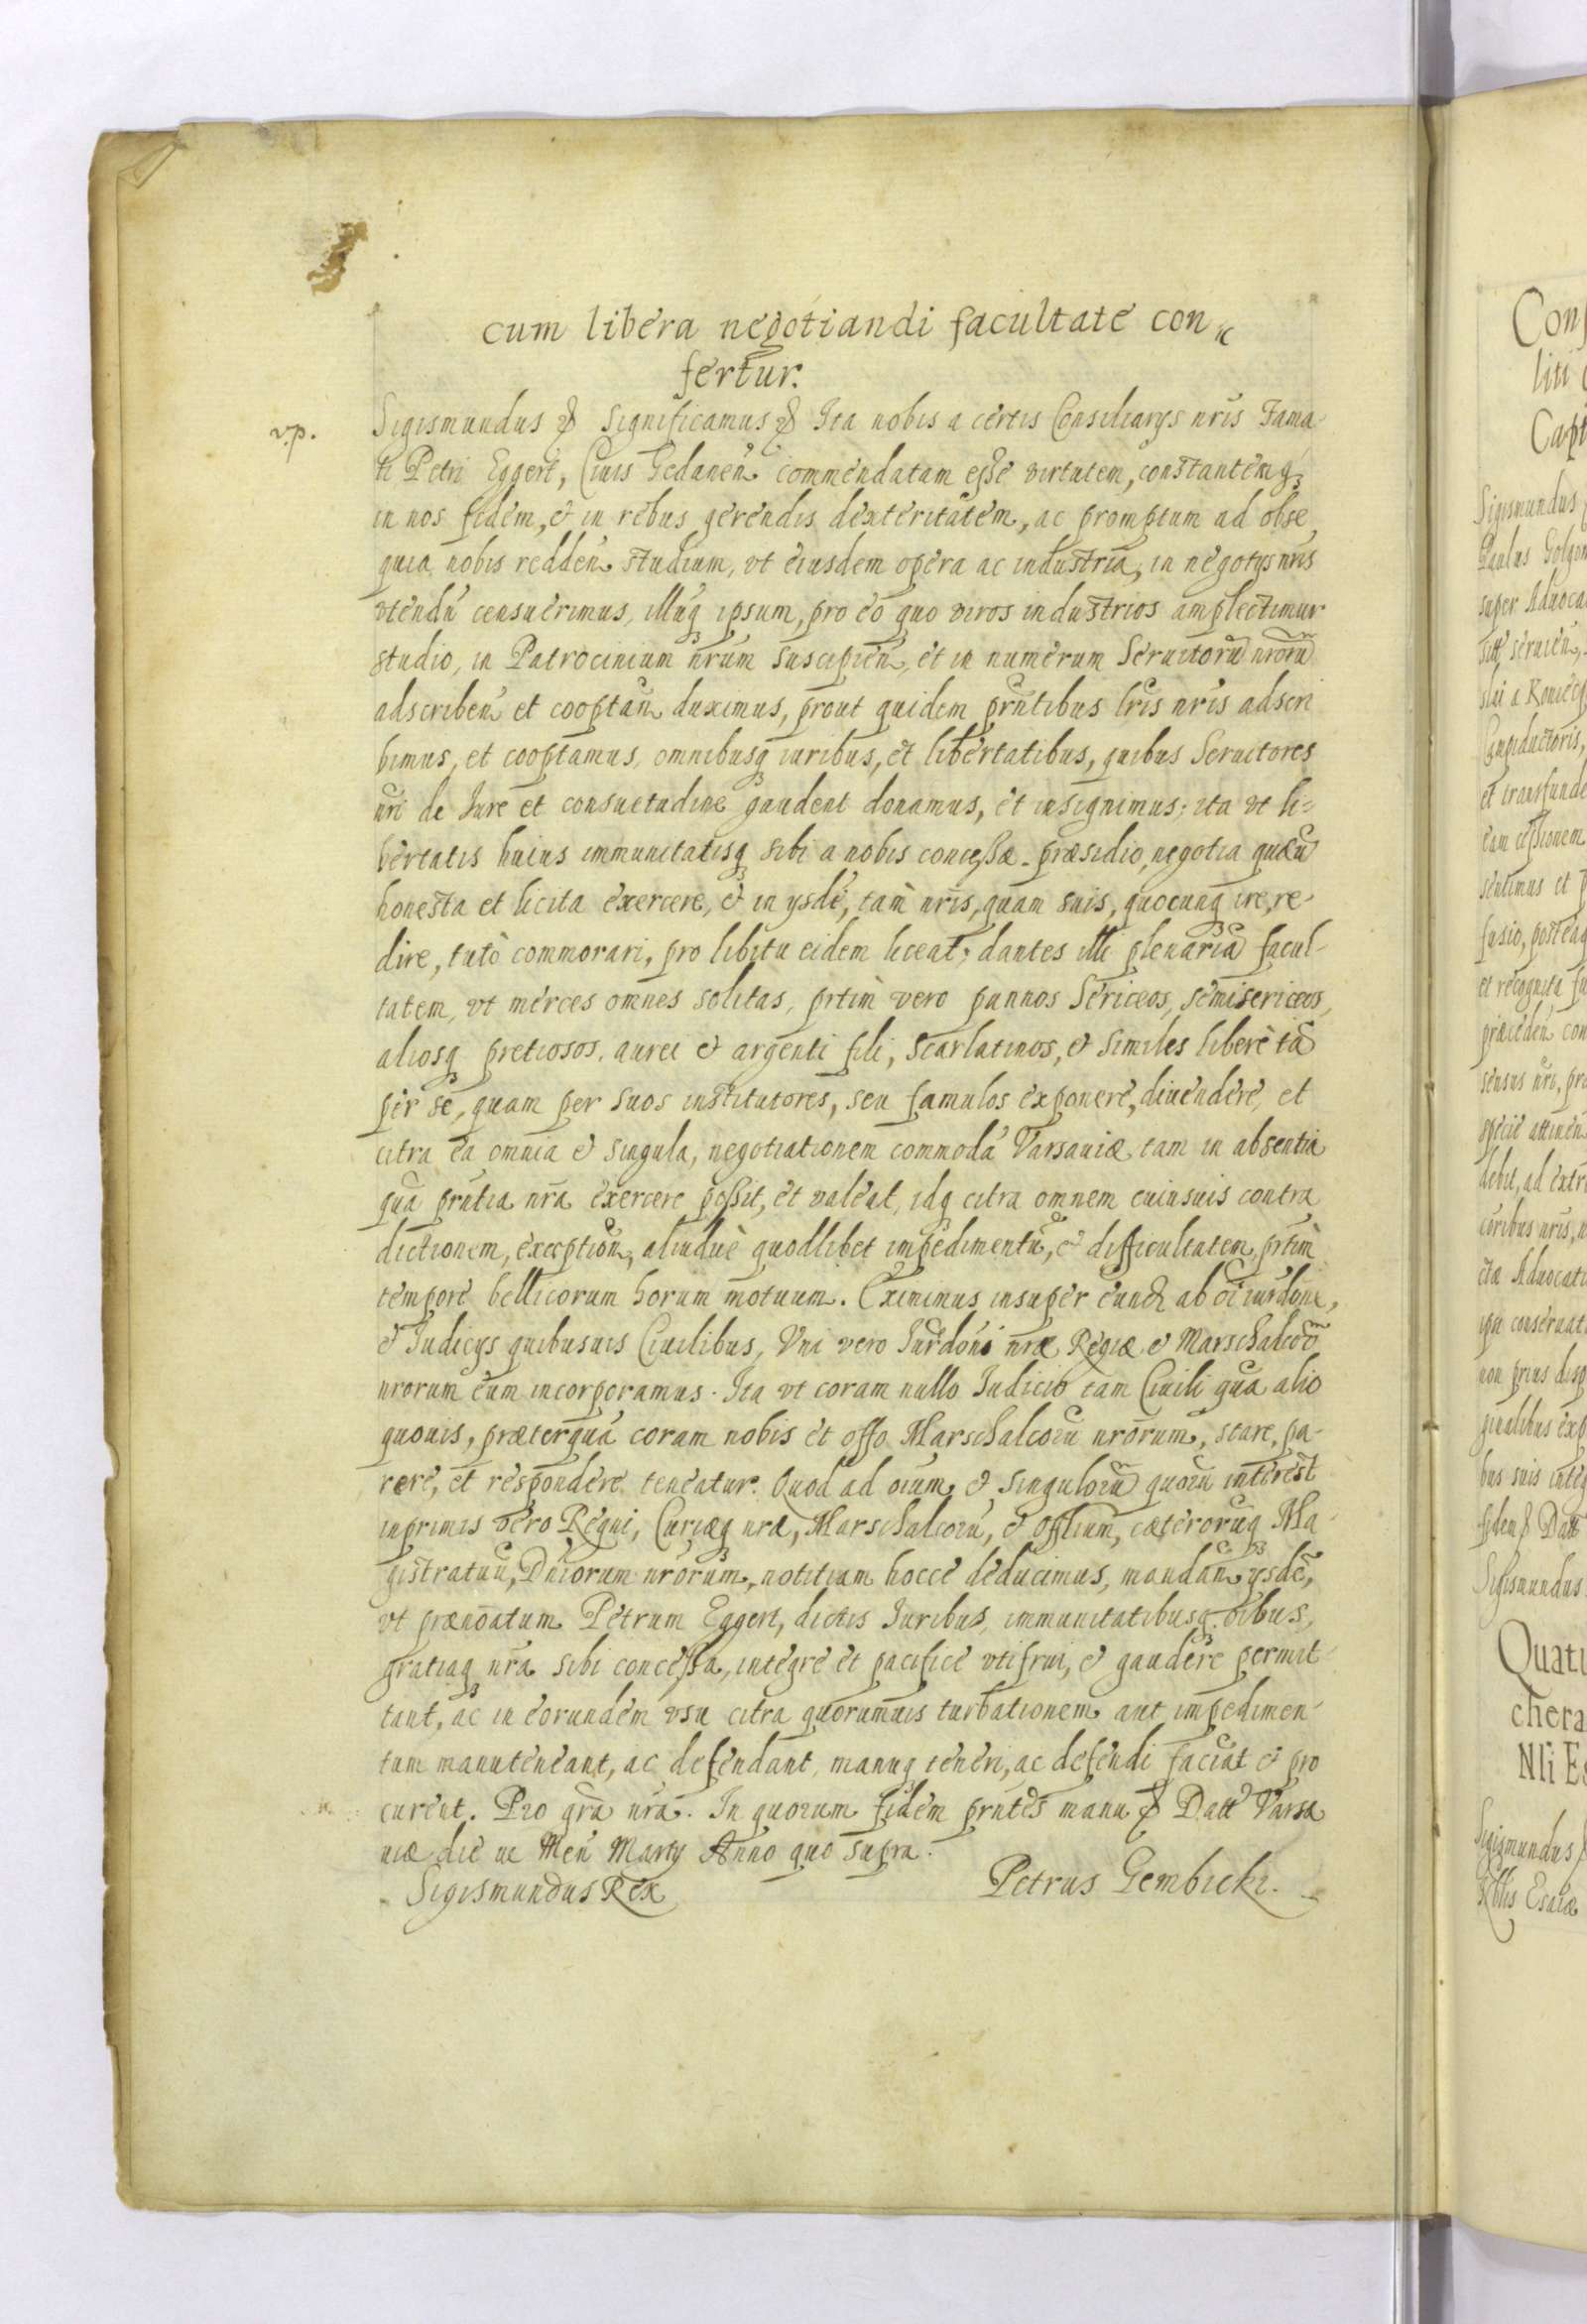 cum libera negotiandi facultate con⸗
fertur.
v.p.
Sigismundus & Significamus & Ita nobis a certis Consiliarys nr̃is Fama⸗
ti Petri Eggert, Ciuis Gedaneñ commendatam esse virtutem, constantemq3
in nos fidem, & in rebus gerendis dexteritatem, ac promptum ad obse
quia nobis reddeñ studium, vt eiusdem opera ac industria, in negotys nr̃is
vtendũ censuerimus, illũq3 ipsum, pro eo quo viros industrios amplectimur
studio, in Patrocinium nr̃um suscipieñ, et in numerum Seruitorũ nr̃orũ
adscribeñ et cooptañ duximus, prout quidem pr̃ntibus lr̃is nr̃is adscri
bimus, et cooptamus, omnibusq3 iuribus, et libertatibus, quibus Seruitores
nr̃i de Iure et consuetudine gaudent donamus, et insignimus; ita vt li⸗
bertatis huius immunitatisq3 sibi a nobis concessæ præsidio, negotia quæũ
honesta et licita exercere, & in ysdẽ, tam nr̃is, quam suis, quocunq3 ire, re⸗
dire, tutò commorari, pro libitu eidem liceat; dantes illi plenariã facul⸗
tatem, vt merces omnes solitas, pr̃tim vero pannos Sericeos, semisericeos,
aliosq3 pretiosos, aurei & argenti fili, Scarlatinos, & similes liberè tã
per se, quam per suos institutores, seu famulos exponere, diuendere, et
citra ea omnia & singula, negotiationem commodã Varsauiæ tam in absentia
quã pr̃ntia nr̃a exercere possit, et valeat, idq3 citra omnem cuiusuis contra
dictionem, exceptioñ, aliudue quodlibet impedimentũ, & difficultatem, pr̃tim
tempore bellicorum horum motuum. Eximimus insuper eund ab oĩ iurdõne,
& Iudicys quibusuis Ciuilibus, Vni vero Iurdõni nr̃æ Regiæ & Marschalcorũ
nrorum eum incorporamus. Ita vt coram nullo Iudicio tam Ciuili quã alio
quouis, præterquã coram nobis et offo Marschalcorũ nr̃orum, stare, pa⸗
rere, et respondere teneatur. Quod ad oium, & singulorũ quorũ interest
inprimis vero Regni, Curiæq3 nr̃æ, Marschalcorũ, & Offlium, cæterorũq3 Ma⸗
gistratuũ, Dñiorum nr̃orum, notitiam hocce deducimus, mandañ ysdẽ,
vt prænoãtum Petrum Eggert, dictis Iuribus, immunitatibusq3 oibus,
gratiaq3 nr̃a sibi concessa, integre et pacifice vtifrui, & gaudere permit⸗
tant, ac in eorundem vsu citra quorumuis turbationem aut impedimen⸗
tum manuteneant, ac defendant, manuq3 teneri, ac defendi faciãt & pro
curent. Pro grã nr̃a. In quorum fidem pr̃ntes manu & Datt Varsa
uiæ die ut Meñ Marty Anno quo supra.
Sigismundus Rex Petrus Gembicki.